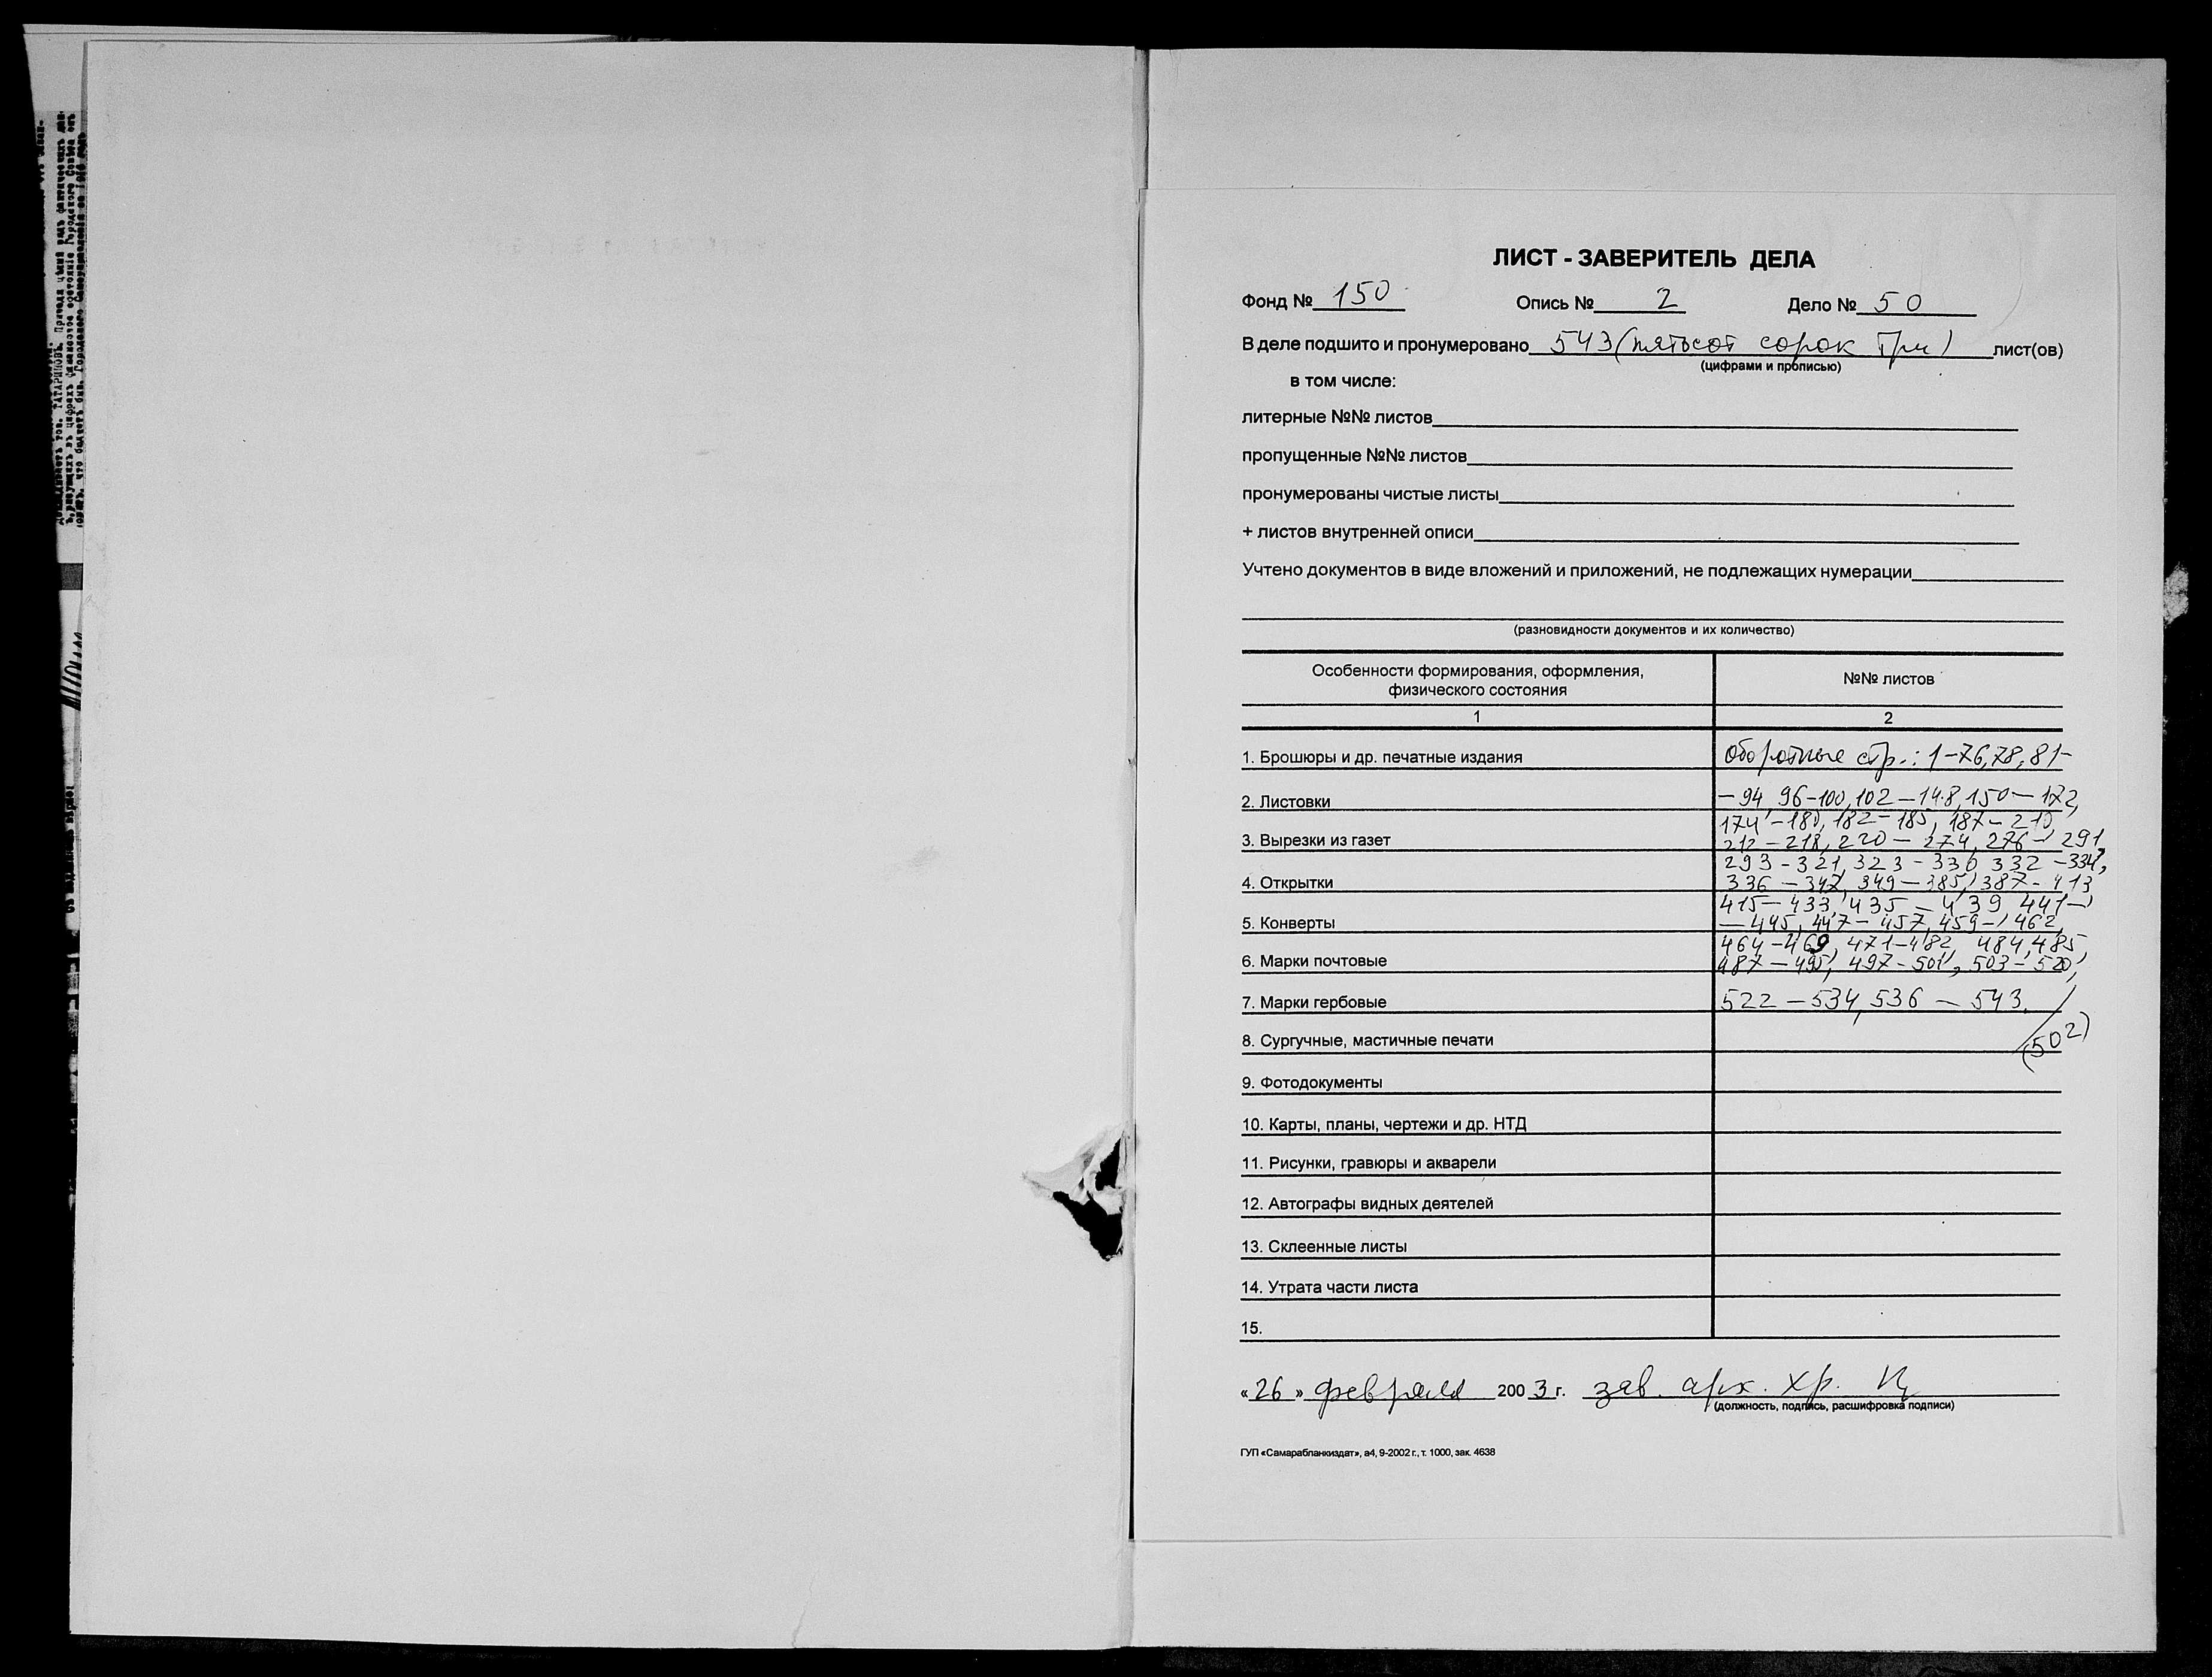 ЛИСТ - ЗАВЕРИТЕЛЬ ДЕЛА
Фонд № 150 Опись № 2 Дело № 50
В деле подшито и пронумеровано 543 (пятьсот сорок три) лист(ов)
(цифрами и прописью)
в том числе:
литерные №№ листов
пропущенные №№ листов
пронумерованы чистые листы
+ листов внутренней описи
Учтено документов в виде вложений и приложений, не подлежащих нумерации
(разновидности документов и их количество)
Особенности формирования, оформления,
физического состояния
№№ листов
1 2
1. Брошюры и др. печатные издания Оборотные стр.: 1-76,78,81-
2. Листовки -94, 96-100, 102-148, 150-172,
174-180, 182-185, 187-210,
3. Вырезки из газет 212-218, 220-274, 276-291,
293-321, 323-330, 332-334,
4. Открытки 336-347, 349-385, 387-413,
415-433, 435-439, 441-
5. Конверты -445, 447-457, 459-462,
464-469, 471-482, 484, 485,
6. Марки почтовые 487-495, 497-501, 503-520,
7. Марки гербовые 522-534, 536-543.
8. Сургучные, мастичные печати (502)
9. Фотодокументы
10. Карты, планы, чертежи и др. НТД
11. Рисунки, гравюры и акварели
12. Автографы видных деятелей
13. Склеенные листы
14. Утрата части листа
15.
«26» февраля 2003 г. зав. арх. хр.
(должность, подпись, расшифровка подписи)
ГУП «Самарабланкиздат», а4, 9-2002 г., т. 1000, зак. 4638